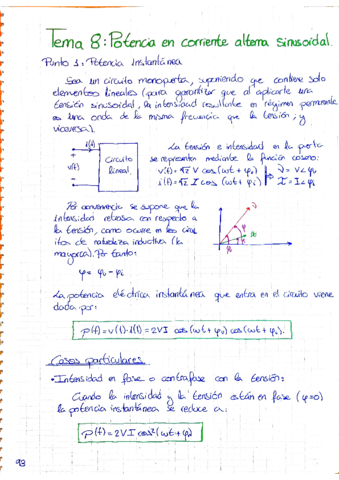 Tema 8: Potencia en corriente alterna sinusoidal.
Punto 1: Potencia Instantánea
Sea un circuito monopuerta, suponiendo que contiene solo
elementos lineales (para garantizar que al aplicarle una
tensión sinusoidal, la intensidad resultante en régimen permanente
es una onda de la misma frecuencia que la tensión, y
viceversa).
i(t)
+
v(t)
-
Circuito
lineal.
La tensión e intensidad en la puerta
se representan mediante la función coseno:
v(t) = √2 V cos (ωt + φv) V = V∠φv
i(t) = √2 I cos (ωt + φi) I = I∠φi
Por conveniencia se supone que la
intensidad retrasa con respecto a
la tensión, como ocurre en los circui
itos de naturaleza inductiva (la
mayoría). Por tanto:
φ = φv - φi
La potencia eléctrica instantánea que entra en el circuito viene
dada por:
p(t) = v(t)·i(t) = 2VI cos(ωt + φv) cos(ωt + φi)
Casos particulares
• Intensidad en fase o contrafase con la tensión:
Cuando la intensidad y la tensión están en fase (φ=0)
la potencia instantánea se reduce a:
p(t) = 2VI cos²(ωt + φv)
93